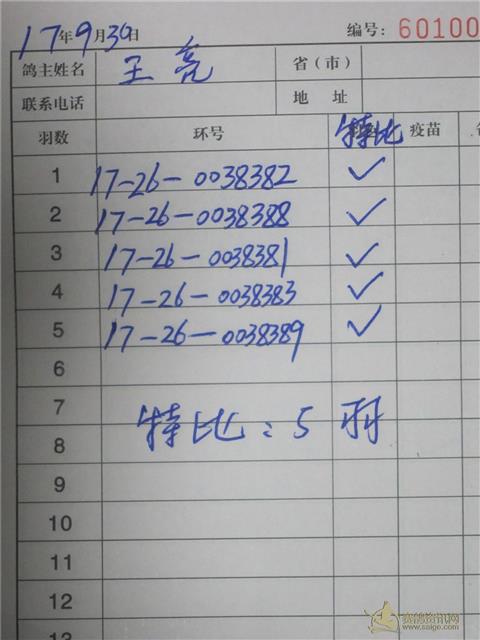 17年9月30日 编号: 60100
鸽主姓名 王亮 省(市)
联系电话 地 址
羽数 环号 特比 疫苗
1 17-26-0038382 ✓
2 17-26-0038388 ✓
3 17-26-0038381 ✓
4 17-26-0038383 ✓
5 17-26-0038389 ✓
6
7
特比:5羽
8
9
10
11
12
13
赛鸽资讯网
www.saige.com